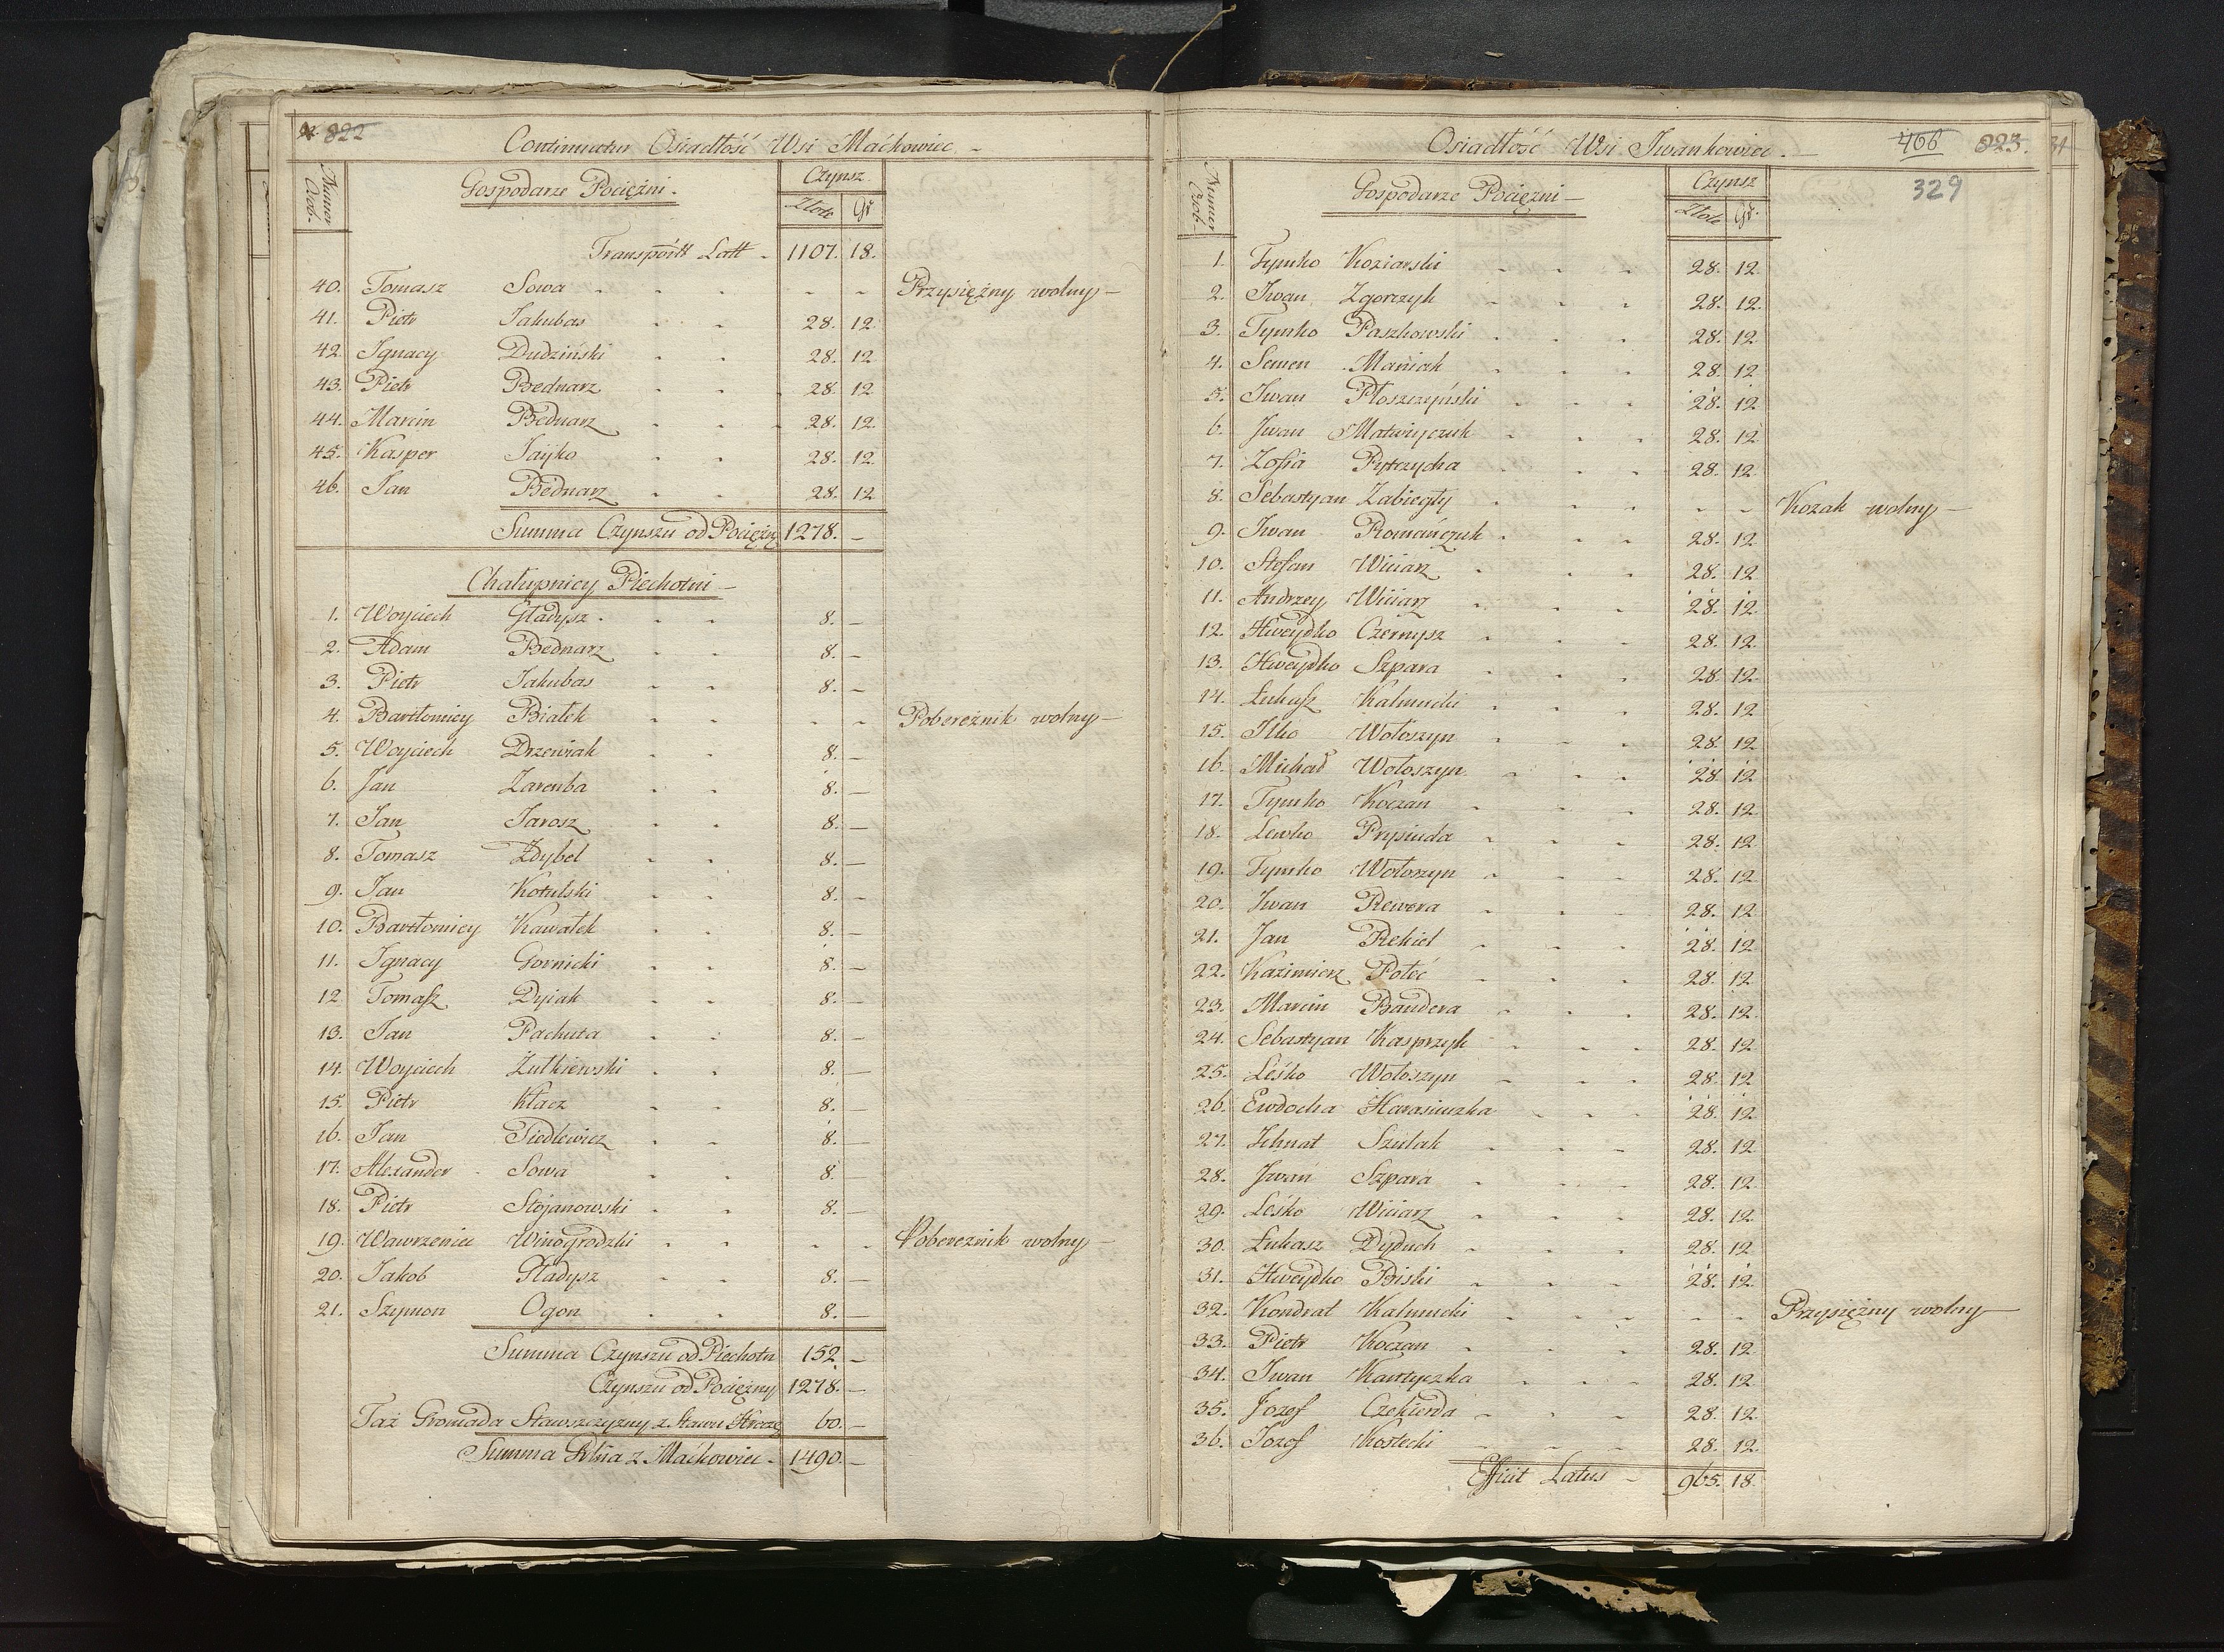 822
Continuatur Osiadłość Wsi Maćkowiec
Numer Osob.
Gospodarze Pociężni
Czynsz
Złote Gr
Transport Latt 1107. 18.
40. Tomasz Sowa - - Przysiężny wolny
41. Piotr Jakubas 28. 12
42. Ignacy Dudziński 28. 12
43. Piotr Bednarz 28. 12
44. Marcin Bednarz 28. 12
45. Kasper Jayko 28. 12
46. Jan Bednarz 28. 12
Summa Czynszu od Pociężny 1278. -
Chałupnicy Piechotni
1. Woyciech Gładysz 8. -
2. Adam Bednarz 8. -
3. Piotr Jakubas 8. -
4. Bartłomiey Białek - - Pobereznik wolny
5. Woyciech Drzewiak 8. -
6. Jan Zaremba 8. -
7. Jan Jarosz 8. -
8. Tomasz Zdybel 8. -
9. Jan Kotulski 8. -
10. Bartłomiey Kawałek 8. -
11. Ignacy Gornicki 8. -
12. Tomasz Dyiak 8. -
13. Jan Pachuta 8. -
14. Woyciech Żułkiewski 8. -
15. Piotr Kłacz 8. -
16. Jan Siedlewicz 8. -
17. Alexander Sowa 8. -
18. Piotr Stojanowski 8. -
19. Wawrzeniec Winogrodzki - - Pobereznik wolny
20. Jakob Gładysz 8. -
21. Szymon Ogon 8. -
Summa Czynszu od Piechotn 152 -
Czynszu od Pociężny 1278. -
Taż Gromada Stawszczyzny z Stawu 60. -
Summa z Maćkowiec 1490. -
Osiadłość Wsi Iwankowiec
466 823.
329
Numer Osob.
Gospodarze Pociężni
Czynsz
Złote Gr.
1. Tymko Koziarski 28. 12
2. Iwan Zgorzyk 28. 12
3. Tymko Paszkowski 28. 12
4. Semen Maniak 28. 12
5. Iwan Płoszczyński 28. 12
6. Iwan Matwiyczuk 28. 12
7. Zofia Pytrzycha 28. 12
8. Sebastyan Zabiegły - - Kozak wolny
9. Iwan Romańczuk 28. 12
10. Stefan Wiciarz 28. 12
11. Andrzey Wiciarz 28. 12
12. Hweydko Czernysz 28. 12
13. Hweydko Szpara 28. 12
14. Łukasz Kalmucki 28. 12
15. Ilko Wołoszyn 28. 12
16. Michał Wołoszyn 28. 12
17. Tymko Koczan 28. 12
18. Lewko Prysiuda 28. 12
19. Tymko Wołoszyn 28. 12
20. Iwan Rewera 28. 12
21. Jan Rekiel 28. 12
22. Kazimierz Połeć 28. 12
23. Marcin Bandera 28. 12
24. Sebastyan Kasprzyk 28. 12
25. Leśko Wołoszyn 28. 12
26. Ewdocha Harasiuczka 28. 12
27. Ichnat Szulak 28. 12
28. Iwan Szpara 28. 12
29. Leśko Wiciarz 28. 12
30. Łukasz Dyduch 28. 12
31. Hweydko Biski 28. 12
32. Kondrat Kalmucki - - Przysiężny wolny
33. Piotr Koczan 28. 12
34. Iwan Kawtyczka 28. 12
35. Jozef Czekierda 28. 12
36. Jozef Kostecki 28. 12
Efficit Latus 965. 18